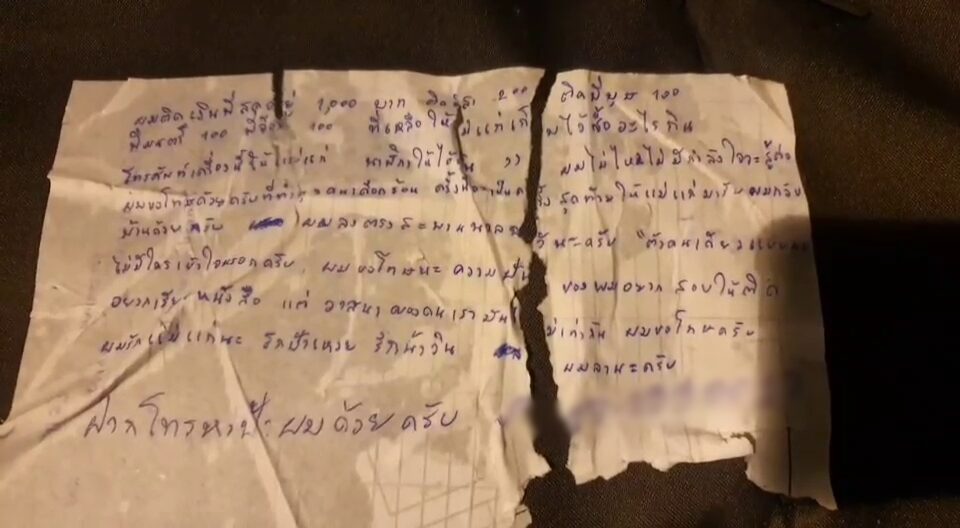 ผมติดเงินพี่ 1,000 บาท 200 ติดพี่ 100
100 100 ที่เหลือให้แม่แก่เก็บไว้ซื้ออะไรกิน
โทรศัพท์เครื่องนี้ให้แม่แก่ นาฬิกาให้ ผมไม่ไหวไม่มีกำลังใจจะสู้ต่อ
ผมขอโทษด้วยครับที่ทำ เดือดร้อน ครั้งนี้จะเป็นครั้งสุดท้ายให้แม่แก่มารับผมกลับ
บ้านด้วยครับ ผมลงตรงสะพาน นะครับ "ตัวคนเดียว
ไม่มีใครเข้าใจหรอกครับ ผมขอโทษนะ ความฝันของผมอยากสอบให้ติด
อยากเรียนหนังสือ แต่วาสนาของคนเรามันไม่เท่ากัน ผมขอโทษครับ
ผมรักแม่แก่นะ รักป้า รักน้าวิน ผมลานะครับ
ฝากโทรหาป้าผมด้วยครับ